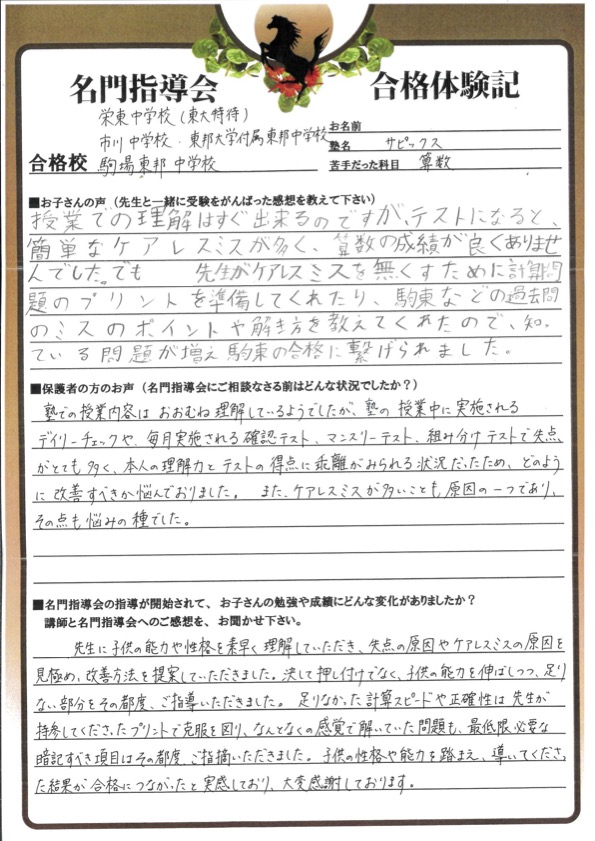 名門指導会
合格体験記
栄東中学校(東大特待)
市川中学校・東邦大学付属東邦中学校
合格校 駒場東邦中学校
お名前
塾名 サピックス
苦手だった科目 算数
■お子さんの声(先生と一緒に受験をがんばった感想を教えて下さい)
授業での理解はすぐ出来るのですが、テストになると、
簡単なケアレスミスが多く、算数の成績が良くありませ
んでした。でも 先生がケアレスミスを無くすために計算問
題のプリントを準備してくれたり、駒東などの過去問
のミスのポイントや解き方を教えてくれたので、知っ
ている問題が増え駒東の合格に繋げられました。
■保護者の方のお声(名門指導会にご相談なさる前はどんな状況でしたか?)
塾での授業内容は おおむね理解しているようでしたが、塾の 授業中に実施される
デイリーチェックや、毎月実施される確認テスト、マンスリーテスト、組み分けテストで失点
がとても多く、本人の理解力とテストの得点に乖離がみられる状況だったため、どのよう
に改善すべきか悩んでおりました。 また、ケアレスミスが多いことも原因の一つであり、
その点も悩みの種でした。
■名門指導会の指導が開始されて、お子さんの勉強や成績にどんな変化がありましたか?
講師と名門指導会へのご感想を、お聞かせ下さい。
先生に子供の能力や性格を素早く理解していただき、失点の原因やケアレスミスの原因を
見極め、改善方法を提案していただきました。決して押し付けでなく、子供の能力を伸ばしつつ、足り
ない部分をその都度、ご指導いただきました。 足りなかった計算スピードや正確性は先生が
持参してくださったプリントで克服を図り、なんとなくの感覚で解いていた問題も、最低限必要な
暗記すべき項目はその都度、ご指摘いただきました。子供の性格や能力を踏まえ、導いてくださっ
た結果が合格につながったと実感しており、大変感謝しております。